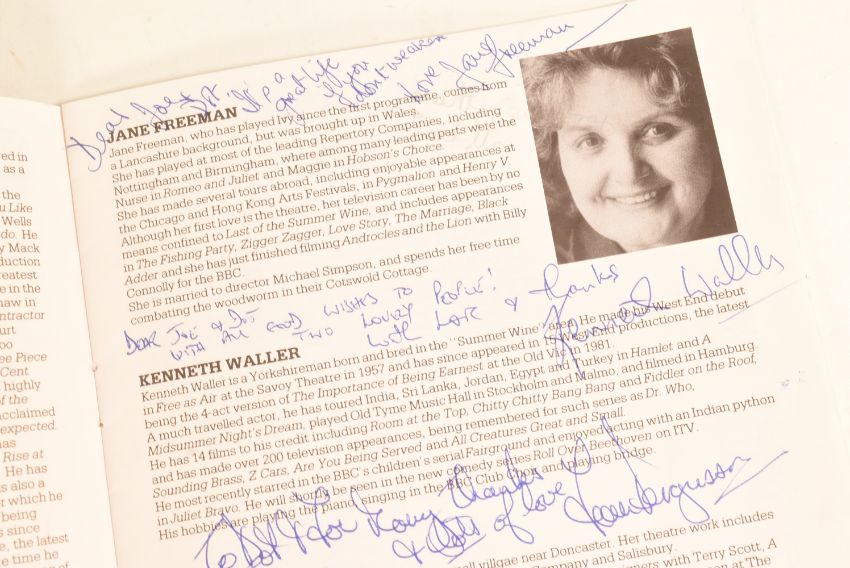 red in
as a
the
u Like
Wells
do. He
y Mack
duction
reatest
e in the
haw in
ontractor
urt
oo
ee Piece
Cent
highly
of the
acclaimed
expected.
has
Rise at
He has
as also a
r which he
being
s since
e, the latest
re time he
Dear Joe & Dot It's a great life if you don't weaken
Love Jane Freeman
JANE FREEMAN
Jane Freeman, who has played Ivy since the first programme, comes from
a Lancashire background, but was brought up in Wales.
She has played at most of the leading Repertory Companies, including
Nottingham and Birmingham, where among many leading parts were the
Nurse in Romeo and Juliet and Maggie in Hobson's Choice.
She has made several tours abroad, including enjoyable appearances at
the Chicago and Hong Kong Arts Festivals, in Pygmalion and Henry V.
Although her first love is the theatre, her television career has been by no
means confined to Last of the Summer Wine, and includes appearances
in The Fishing Party, Zigger Zagger, Love Story, The Marriage, Black
Adder and she has just finished filming Androcles and the Lion with Billy
Connolly for the BBC.
She is married to director Michael Simpson, and spends her free time
combating the woodworm in their Cotswold Cottage.
DEAR JOE & DOT
WITH ALL GOOD WISHES TO
TWO LOVELY PEOPLE!
WITH LOVE & thanks
Kenneth Waller
KENNETH WALLER
Kenneth Waller is a Yorkshireman born and bred in the "Summer Wine" area. He made his West End debut
in Free as Air at the Savoy Theatre in 1957 and has since appeared in 16 West End productions, the latest
being the 4-act version of The Importance of Being Earnest at the Old Vic in 1981.
A much travelled actor, he has toured India, Sri Lanka, Jordan, Egypt and Turkey in Hamlet and A
Midsummer Night's Dream, played Old Tyme Music Hall in Stockholm and Malmo, and filmed in Hamburg.
He has 14 films to his credit including Room at the Top, Chitty Chitty Bang Bang and Fiddler on the Roof,
and has made over 200 television appearances, being remembered for such series as Dr. Who,
Sounding Brass, Z Cars, Are You Being Served and All Creatures Great and Small.
He most recently starred in the BBC's children's serial Fairground and enjoyed acting with an Indian python
in Juliet Bravo. He will shortly be seen in the new comedy series Roll Over Beethoven on ITV.
His hobbies are playing the piano, singing in the BBC Club Choir and playing bridge.
To Dot & Joe Many thanks
& lots of love Jean Fergusson
ll villgae near Doncaster. Her theatre work includes
Company and Salisbury.
igners with Terry Scott, A
on at The